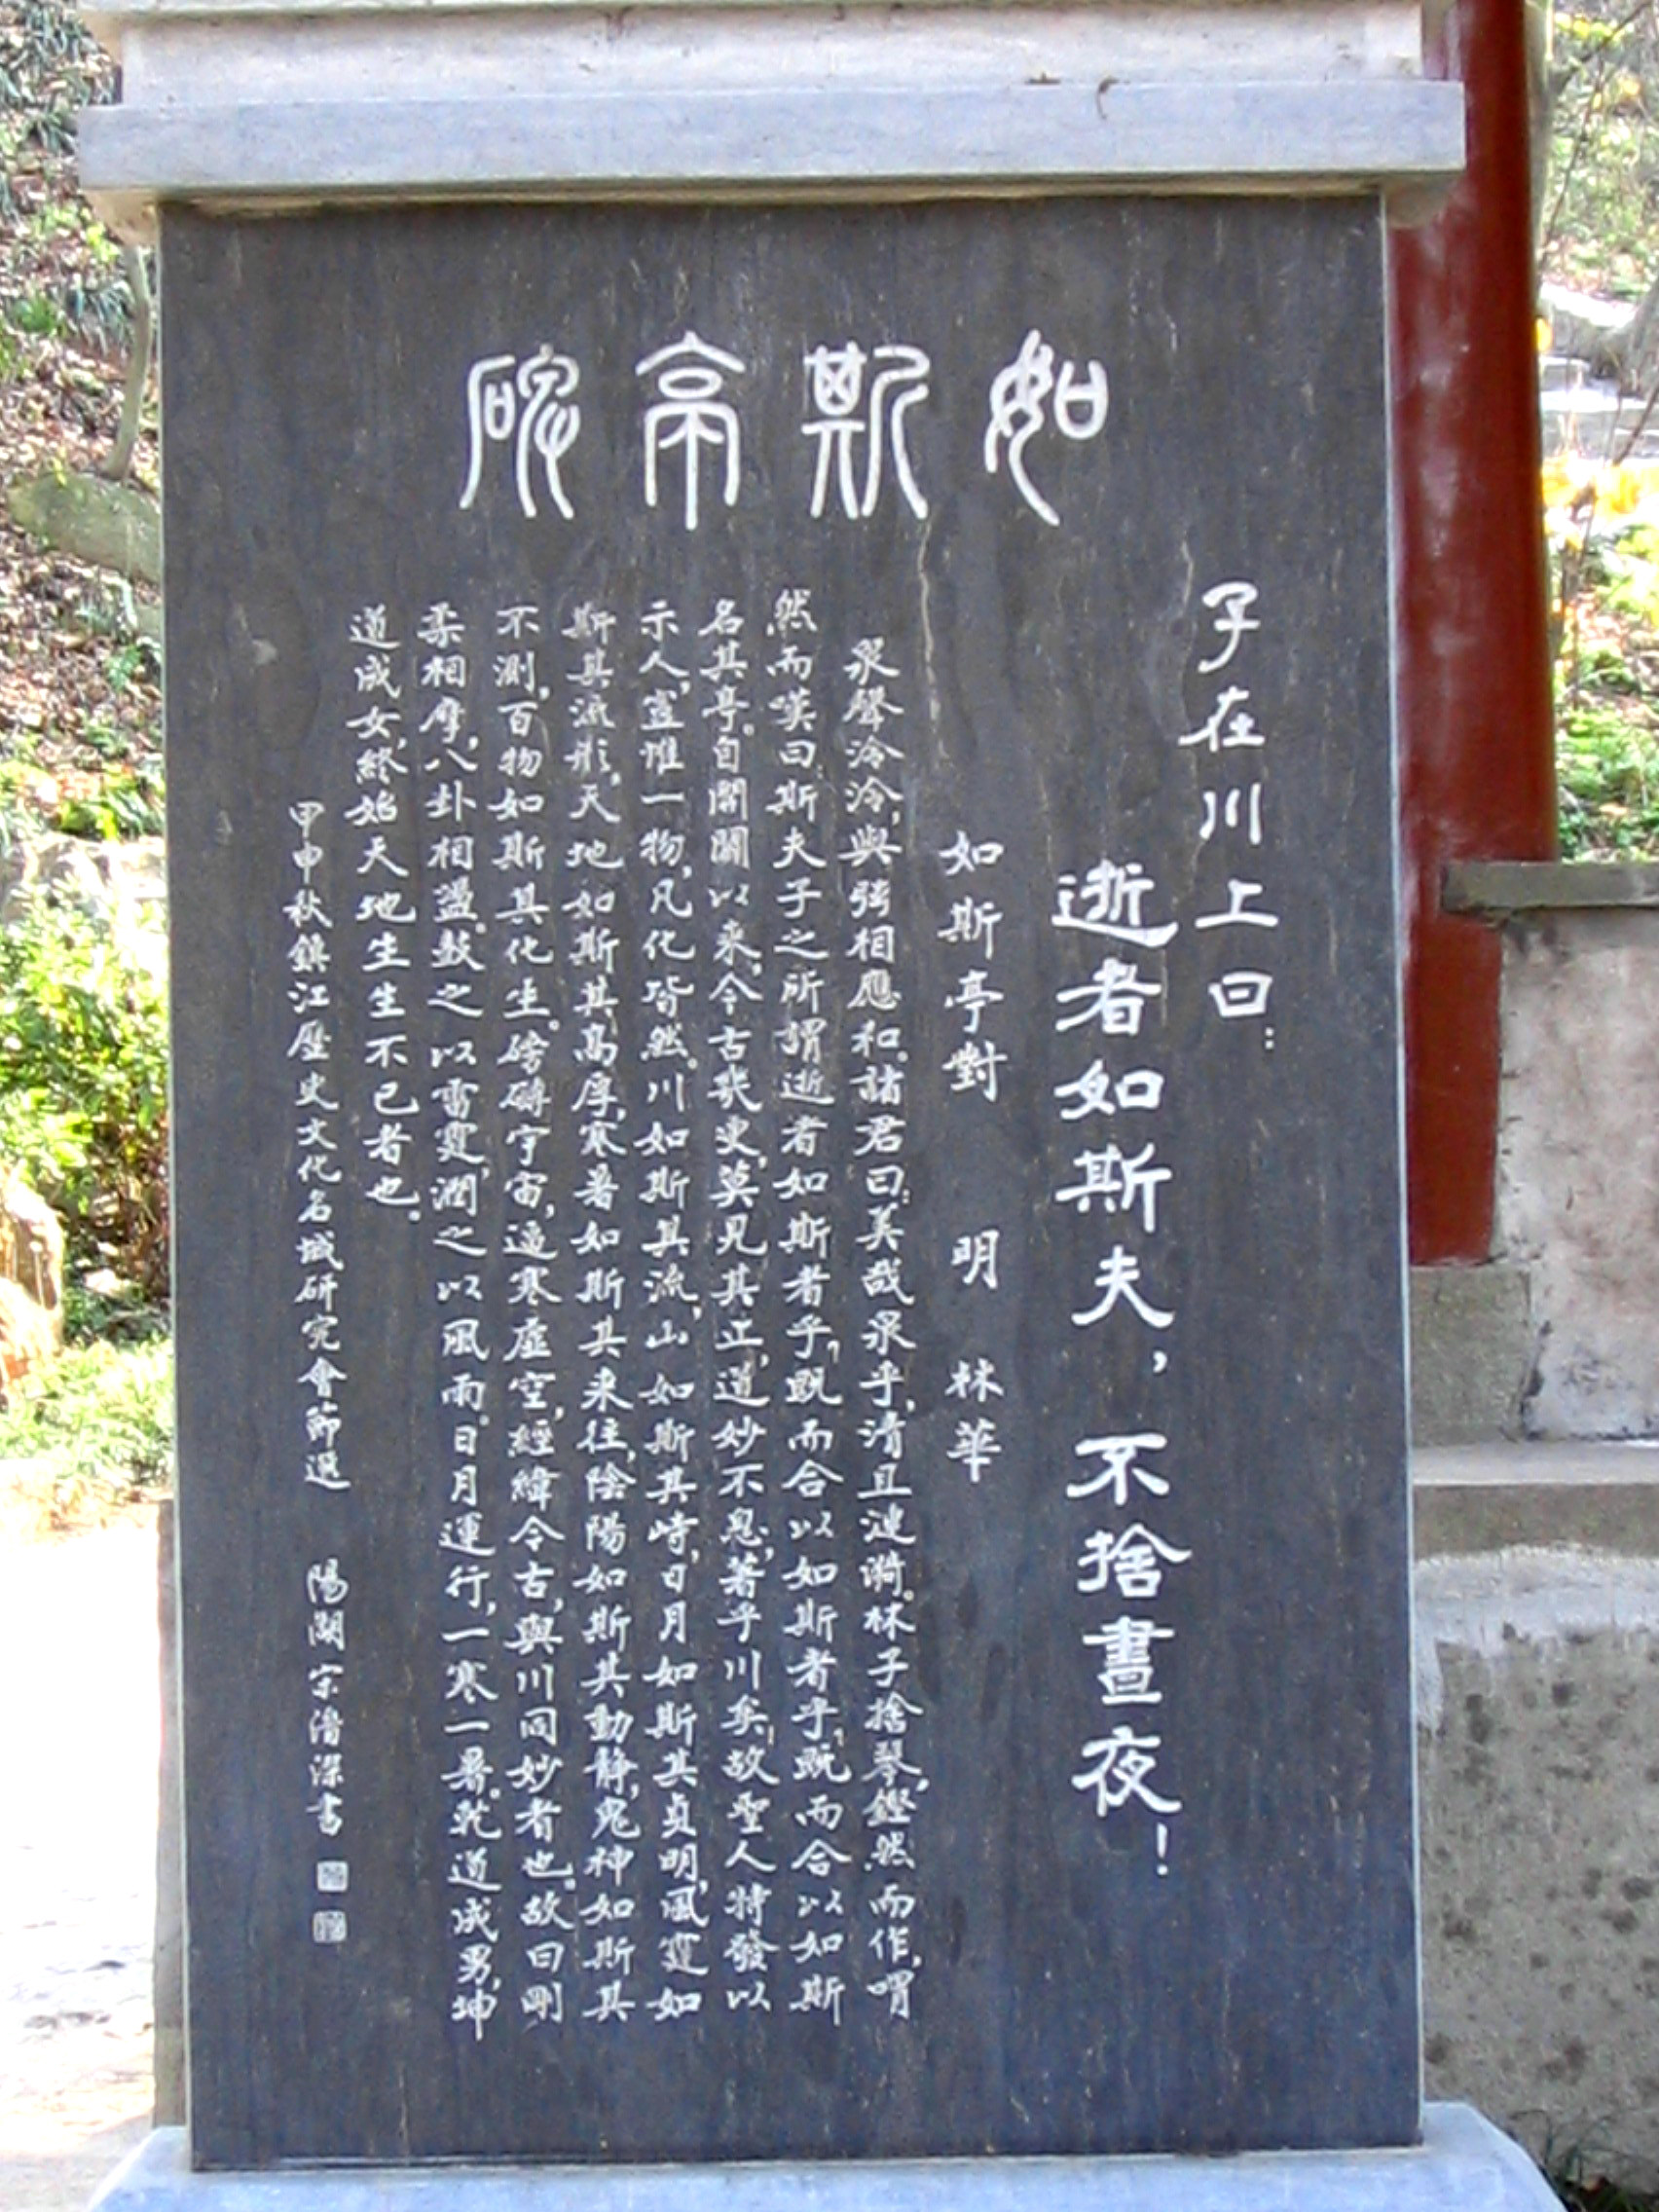 如斯亭碑
子在川上曰：
逝者如斯夫，不捨晝夜！
如斯亭對 明 林華
泉聲泠泠，與弦相應和。諸君曰：美哉泉乎，清且漣漪。林子捨琴，鏗然而作，喟
然而嘆曰：斯夫子之所謂逝者如斯者乎，既而合以如斯者乎，既而合以如斯
名其亭。自開闢以來，今古幾更，莫見其止，道妙不息，著乎川矣，故聖人特發以
示人，豈惟一物，凡化皆然。川如斯其流，山如斯其峙，日月如斯其貞明，風霆如
斯其流形，天地如斯其高厚，寒暑如斯其來往，陰陽如斯其動靜，鬼神如斯其
不測，百物如斯其化生。磅礴宇宙，逼塞虛空，經緯今古，與川同妙者也。故曰剛
柔相摩，八卦相盪。鼓之以雷霆，潤之以風雨。日月運行，一寒一暑。乾道成男，坤
道成女，終始天地生生不已者也。
甲申秋鎮江歷史文化名城研究會節選 陽湖宗濬深書